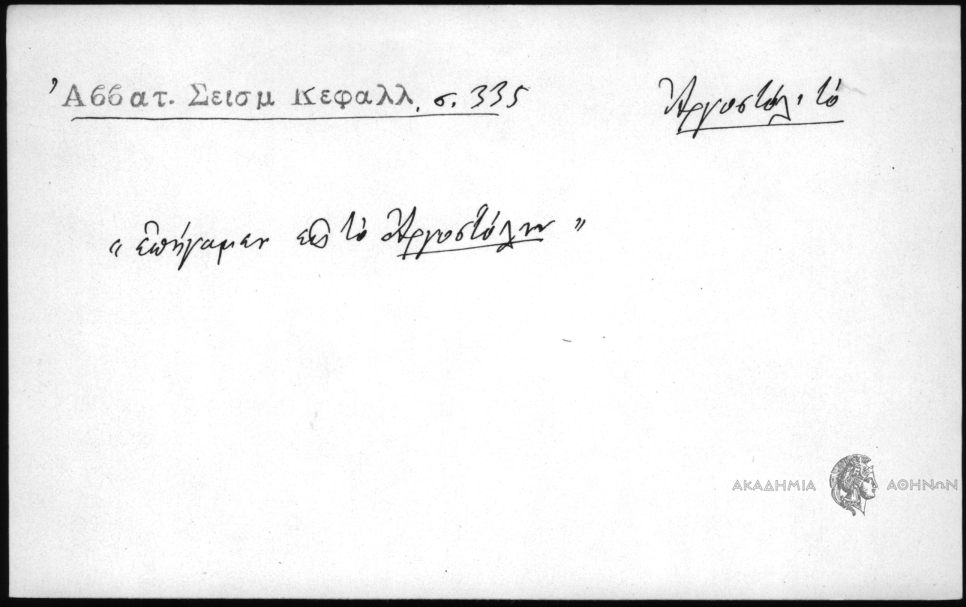 Ἀββατ. Σεισμ Κεφαλλ. σ. 335
Ἀργοστόλι τό
« ἐπήγαμεν εἰς τὸ Ἀργοστόλιν »
ΑΚΑΔΗΜΙΑ ΑΘΗΝΩΝ